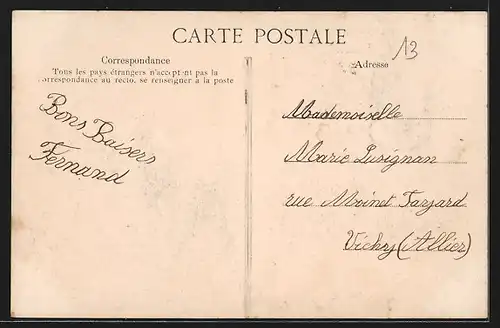 CARTE POSTALE
13
Correspondance
Tous les pays étrangers n'acceptent pas la
correspondance au recto, se renseigner à la poste
Bons Baisers
Fernand
Adresse
Mademoiselle
Marie Lusignan
rue Moinet Farjard
Vichy (Allier)